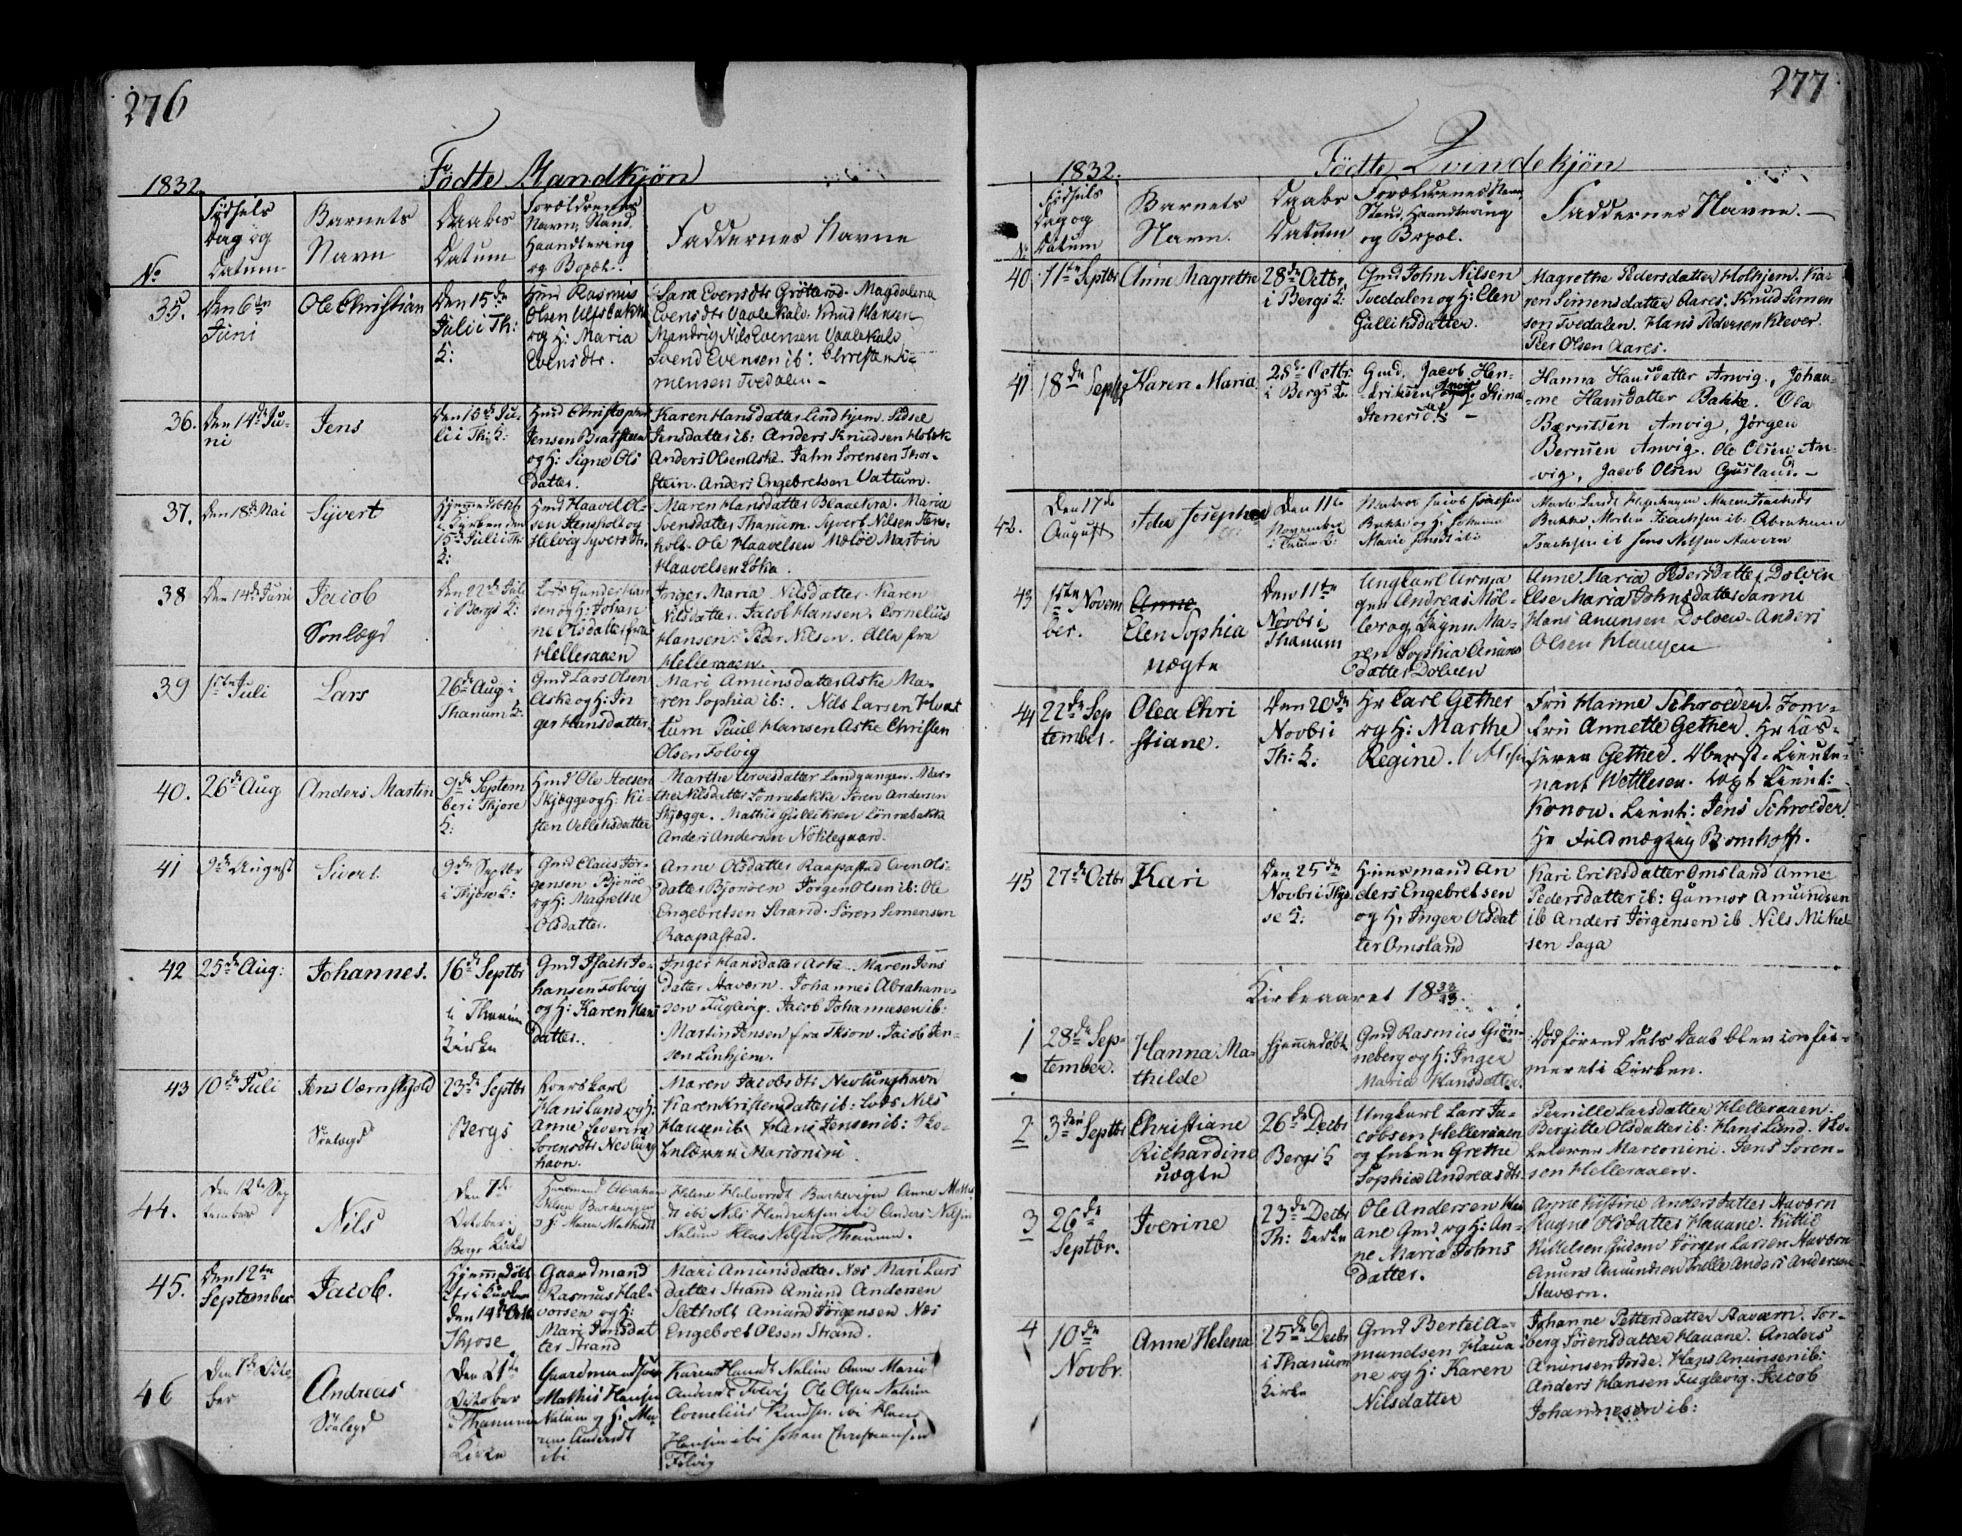 276
Födte Mandkjön
1832.
No
Födsels
Dag og
Datum
Barnets
Navn
Daabs
Datum
Forældrenes
Navn, Stand,
Haandtering
og Bopæl.
Faddernes Navne
35.
Den 6te
Juni
Ole Christian
Den 15de
Juli i Th:
K:
Rasmus
Olsen
og H: Maria
Evensdtr.
Sara Evensdtr Grötteröd. Magdalena
Evensdtr Vaalekals. Knud Hansen
Manvig Nils Evensen Vaalekals
Svend Evensen ib: Christen Si-
mensen Tvedalen -
36.
Den 14de Ju-
ni
Jens
Den 15de Ju-
li i Th: K:
Christopher
Jensen Bratsteen
og H: Signe Ols
datter.
Karen Hansdatter Lindhjem. Sidsel
Jensdatter ib: Anders Knudsen
Anders Olsen Aske. Jahn Sörensen Thor-
stein. Anders Engebretsen Vattum.
37.
Den 18de Mai
Syvert
Hjemmedöbt
i Kirken den
15de Juli i Th:
K:
Haavel Ol-
sen Stensholt og
Helvig Syversdtr.
Maren Hansdatter Blaaekra. Maria
Svensdatter Thanum. Syvert Nilsen Stens-
holt. Ole Haavelsen Melöe Martin
Haavelsen
38
Den 14de Juni
Jacob
Den 22de Juli
i Bergs K:
Lods Gunder Han
sen og H: Johan
ne Olsdatter fra
Helleraaen
Inger Maria Nilsdatter. Karen
Nilsdatter. Jacob Hansen. Cornelius
Hansen. Peder Nilsen. Alle fra
Helleraaen.
39
1ste Juli
Lars
26de Aug i
Thanum K:
Gmd Lars Olsen
Aske og H: In
ger Hansdatter.
Mari Amunsdatter Aske Ma-
ren Sophia ib:. Nils Larsen Hvat
tum Paul Hansen Aske Christen
Olsen Folvig
40.
26de Aug
Anders Martin
9de Septem
ber i Thjose
K:
Ole
Skjægge og H. Ki-
sten
Marthe Arvesdatter Landgangen. Mar-
the Nilsdatter Lönnebakke Sören Andersen
Skjægge. Mathis Gulliksen Lönnebakke
Anders Andersen Nöklegaard.
41
9de August
Sivert.
9de Septbr
i Thjose K:
Gmd Claus Jör-
gensen Bjönöe
og H: Magrethe
Olsdatter.
Anne Olsdatter Raapastad Even Ols-
datter Bjonöen Jörgen Olsen ib: Ole
Engebretsen Strand. Sören Simensen
Raapastad.
42
25de Aug:
Johannes.
16de Septbr
i Thanum
Kirke
Gmd Isach Jo-
hansen Folvig
og H: Karen Han
datter.
Inger Hansdatter Aske. Maren Jens
datter Havern. Johannes Abraham-
sen Fuglevig. Jacob Johannesen ib:
Martin Jensen fra Skion. Jacob Jen-
sen Linhjem.
43
10de Juli
Jens Værnskjold
23de Septbr
Bergs
Hans Lund og H:
Anne Severine
Sörensdtr Nevlung
havn.
Maren Jacobsdtr Nevlunghavn
Karen Kristensdatter ib: Lods Nils
Hansen ib: Hans Jensen ib: Sko-
lelærer Marionini.
44.
Den 12te Sep
tember
Nils
Den 7de
October i
Bergs Kirke
Huusmand Abraham
Nilsen Barkevigen
45.
Den 12te
September
Jacob.
Hjemmedöbt
Den 14de Octb
Thjose
Gaardmand
Rasmus Hal-
vorsen og H:
Mari Jonsdat
ter Strand
Mari Amunsdatter Næs Mari Lars
datter Strand Amund Andersen
Sletholt Amund Jörgensen Næs
Engebret Olsen Strand.
46
Den 1de Octo
ber
Andreas
Den 21de
October
i Thanum
Kirke
Mathis Hansen
Nalum og H. Ma-
ren Andersdt
ibi
Karen Nalum Anne Marie
Andersdt Folvig Ole Olsen Nalum
Cornelius Knudsen ibi
Hansen ibi Johan Christiansen
Folvig
277
Födte Qvindekjön
1832.
No
Födsels
Dag og
Datum
Barnets
Navn.
Daabs
Datum
Forældrenes Navn,
Stand, Haandtering
og Bopæl.
Faddernes Navne. -
40
11te Septbr
Anne Magrethe
28de Octbr
i Bergs K:
Gmd John Nilsen
Tvedalen og H: Elen
Gulliksdatter.
Magrethe Pedersdatter Holhjem. Ka-
ren Simensdatter Aares. Knud Simen
sen Tvedalen. Hans Pedersen Klever.
Peer Olsen Aares.
41
18de Septbr
Karen Maria
28de Octbr.
i Bergs K.
Gmd. Jacob Hen-
driksen, Anvig Stina
Stenersdt: -
Hanna Hansdatter Anvig., Johan-
ne Hansdatter Bakke. Ola
Berntsen Anvig, Jørgen
Bernsen Anvig. Ole Olsen An-
vig, Jacob Olsen Gusland. -
42.
Den 17de
August
Ida Josephine
Den 11te
November
43
1ste Novem
ber.
Anne
Elen Sophia
uægte
Den 11te
Novbr i
Thanum
Ungkarl
Andreas Möl-
lerog Pigen Ma-
ren Sophia Amuns
datter Dolven
Anne Maria Pedersdatter Dolven
Else Maria Johnsdatter Sanne
Hans Amunsen Dolven. Anders
Olsen Haugen
44
22de Sep
tember.
Olea Chri
stiane.
Den 20de
Novbr i
Th: K:
Hr Carl Gether
og H: Marthe
Regine.
Fru Hanne Schroeder. Jom-
fru Annette Gether. Hr Kas-
serer Gether. Oberst-Lieute-
nant Wettlesen. Capt Lieut:
Konow. Lieut: Jens Schroeder.
Hr Fuldmægtig Bomhoff.
45
27de Octbr
Kari
Den 25de
Novbr i Thjo
se K:
Huusmand An
ders Engebretsen
og H: Inger Olsdat
ter Omsland
Kari Eriksdatter Omsland Anne
Pedersdatter ib: Gunnor Amundsen
ib Anders Jörgensen ib Nils Mikel
sen Saga
Kirkeaaret 18 32/33.
1
28de Sep-
tember.
Hanna Ma-
thilde
Hjemmedöbt
Gmd Rasmus Grön-
neberg og H: Inger
Maria Hansdatter.
Död förend dets Daab blev confir-
meret i Kirken.
2
3die Septbr
Christiane
Richardine
uægte
26de Decbr
Bergs K
Ungkarl Lars Ja-
cobsen Helleraaen
og Enken Grethe
Sophia Andreasdtr
Pernille Larsdatter Helleraaen.
Bergitte Olsdatter ib: Hans Lund. Sko-
lelærer Marionini. Jens Sören-
sen Helleraaen.
3
26de
Septbr.
Iverine
23de Decbr
Th: Kirke
Ole Andersen Hau
ane Gmd. og H: An-
ne Maria Johns
datter.
Anne Kistine Andersdatter Haværn
Ragne Olsdatter Hauane. Kittil
Kittelsen Gusone Jörgen Larsen Haværn
Amund Amundsen Anders Andersen
Haværn.
4
10de
Novbr.
Anne Helena
25de Decbr
i Thanum
Kirke
Gmd Bertel A-
mundsen Haua
ne og H: Karen
Nilsdatter
Johanne Pettersdatter Haværn. Tor-
berg Sörensdatter Hauane. Anders
Amunsen Jorde. Hans Amunsen ib:
Anders Hansen Fuglevig. Jacob
Johannesen ib: